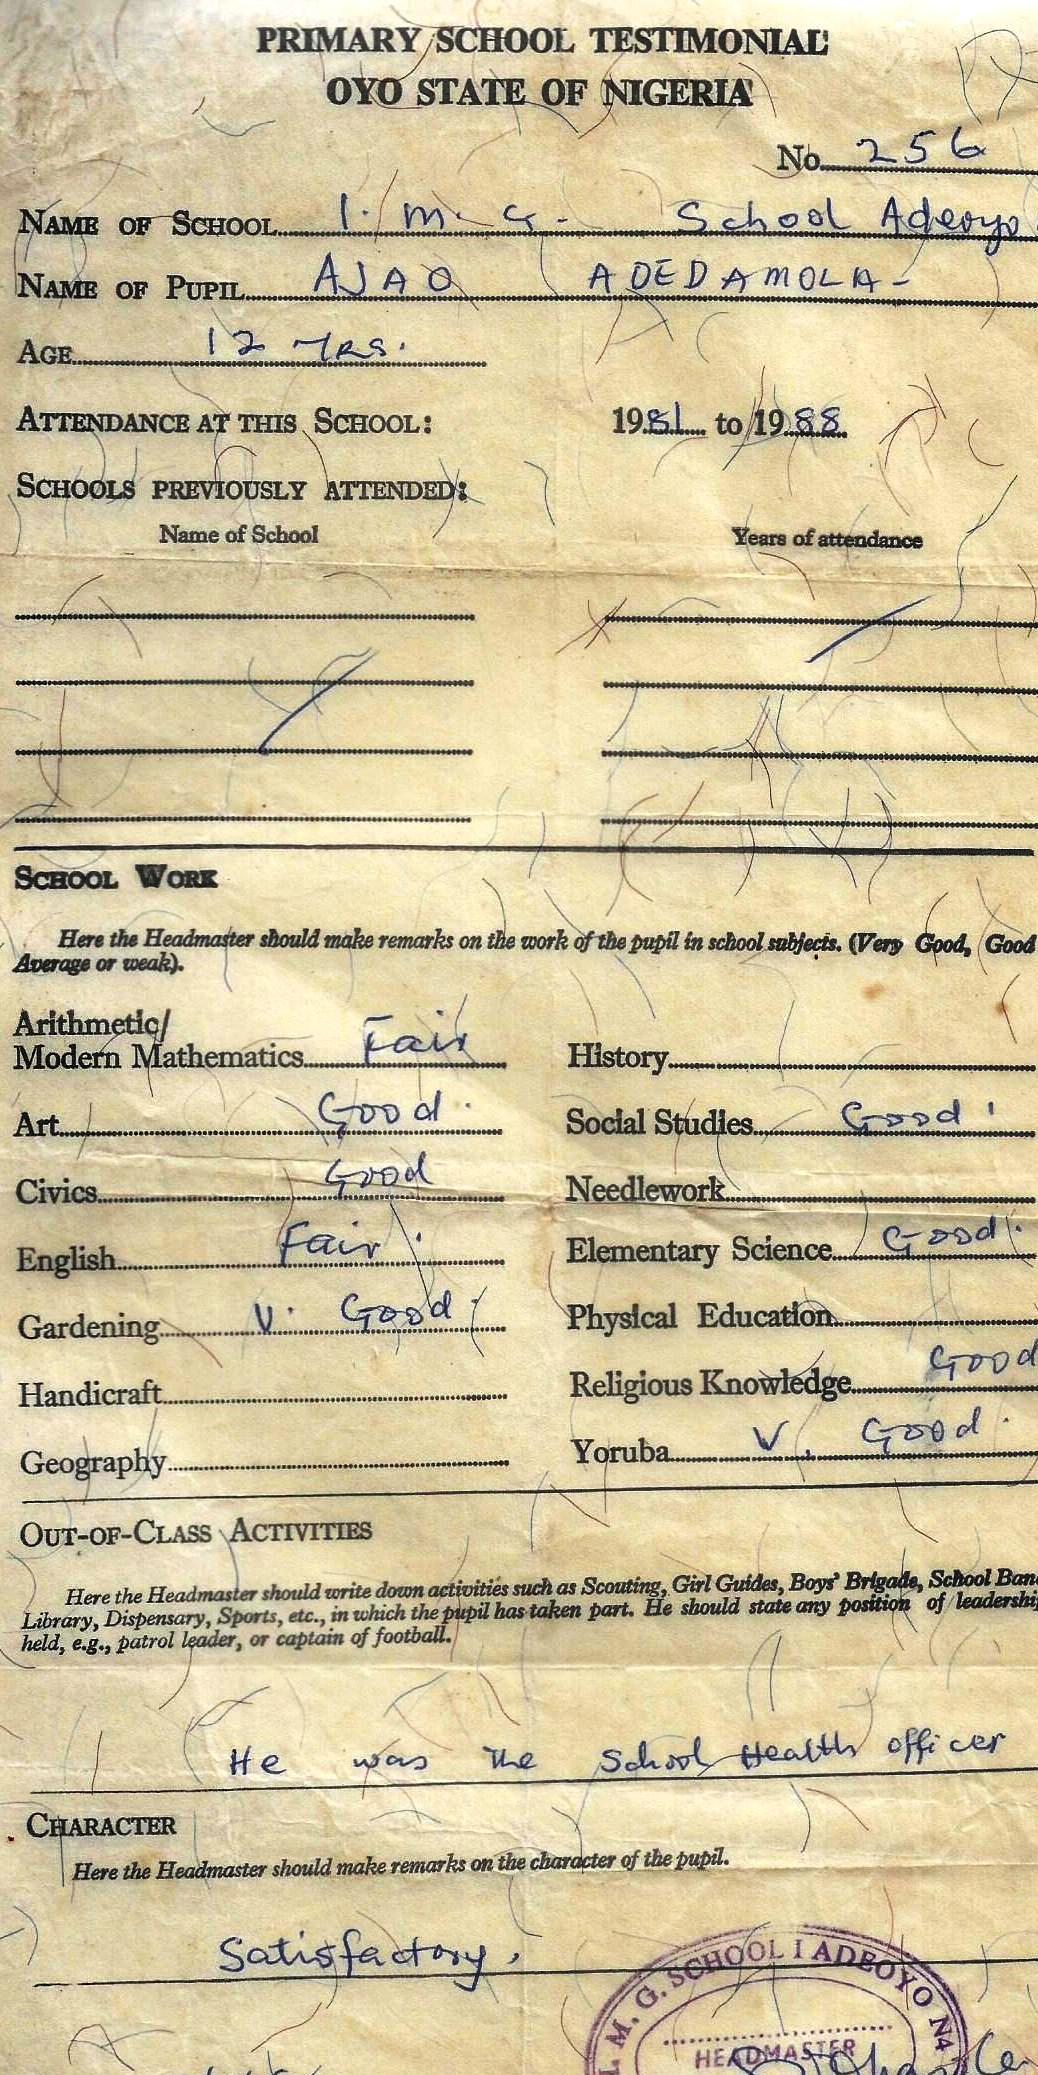 PRIMARY SCHOOL TESTIMONIAL
OYO STATE OF NIGERIA
No. 256
NAME OF SCHOOL I. M. G. School Adeoyo
NAME OF PUPIL AJAO ADEDAMOLA-
AGE 12 Yrs.
ATTENDANCE AT THIS SCHOOL: 1981 to 1988
SCHOOLS PREVIOUSLY ATTENDED:
Name of School Years of attendance
SCHOOL WORK
Here the Headmaster should make remarks on the work of the pupil in school subjects. (Very Good, Good
Average or weak).
Arithmetic/
Modern Mathematics Fair History
Art Good. Social Studies Good
Civics Good Needlework
English Fair Elementary Science Good.
Gardening V. Good. Physical Education
Handicraft Religious Knowledge Good
Geography Yoruba V. Good.
OUT-OF-CLASS ACTIVITIES
Here the Headmaster should write down activities such as Scouting, Girl Guides, Boys' Brigade, School Ban
Library, Dispensary, Sports, etc., in which the pupil has taken part. He should state any position of leadershi
held, e.g., patrol leader, or captain of football.
He was the School Health officer
CHARACTER
Here the Headmaster should make remarks on the character of the pupil.
Satisfactory.
M. G. SCHOOL I ADEOYO N4
HEADMASTER